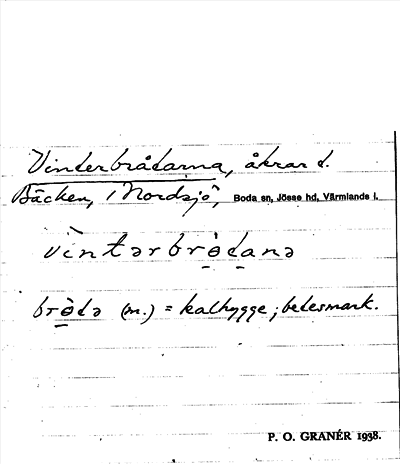 Vinterbrådarna, åkrar t.
Bäcken, i Nordsjö, Boda sn, Jösse hd, Värmlands l.
vìntərbrə̀danə
brə̀də (m.) = kalhygge; betesmark.
P. O. GRANÉR 1938.